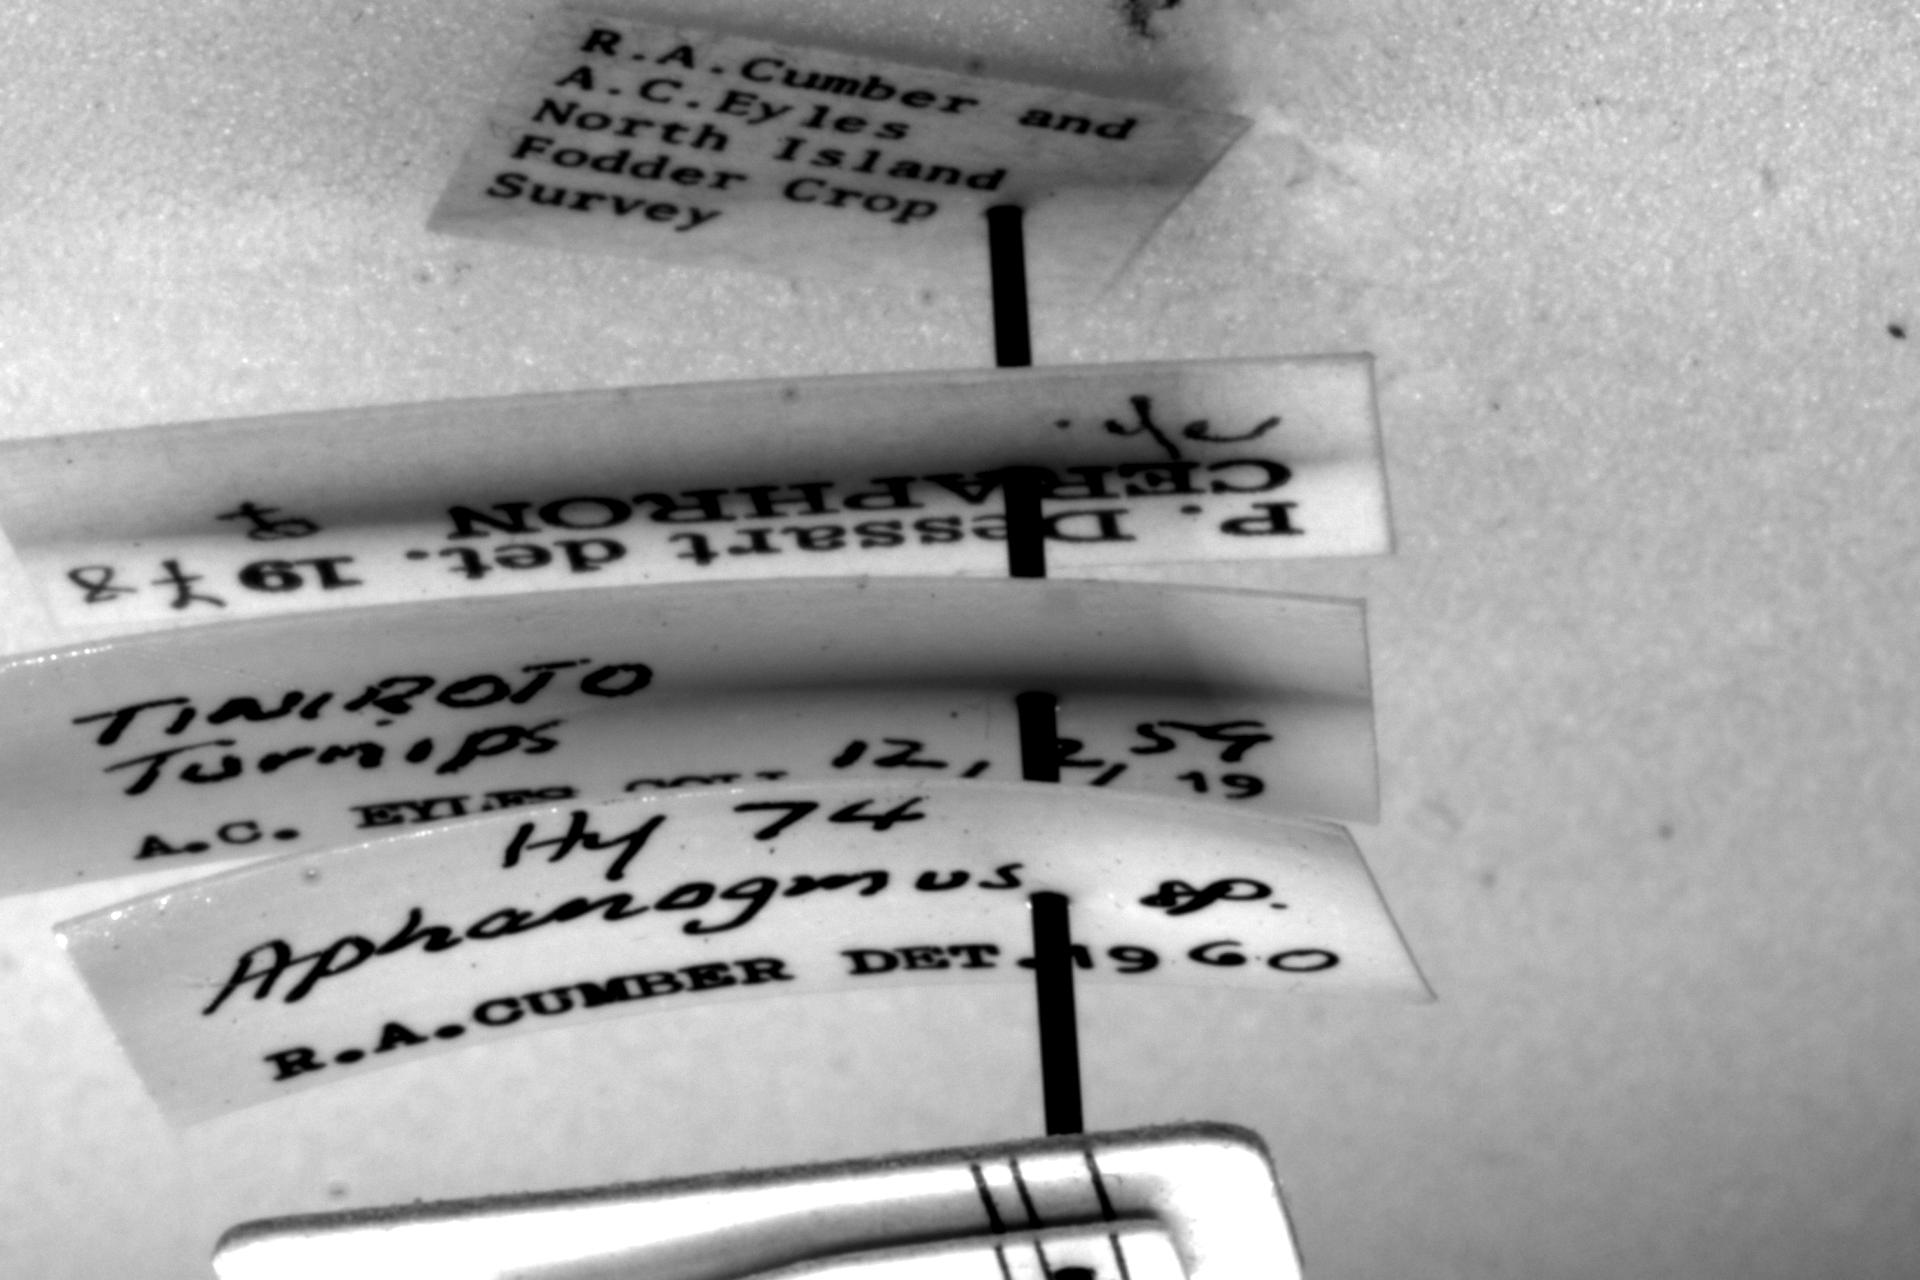 R.A.Cumber and
A.C.Eyles
North Island
Fodder Crop
Survey
P. Dessart det. 19 78
CERAPHRON ♀
sp.
TINIROTO
Turnips
A.C. EYLES COLL. 12, 2, 59
19
Hy 74
Aphanogmus sp.
R.A.CUMBER DET. 1960